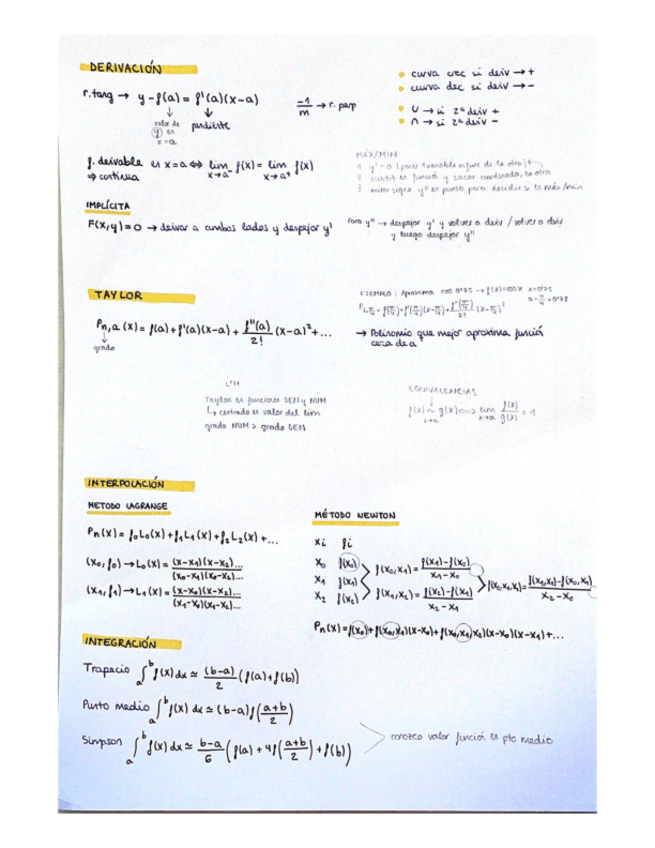 DERIVACIÓN
r.tang → y-f(a) = f'(a)(x-a)
valor de (y) en x=a
pendiente
-1/m → r. perp
• curva crec si deriv → +
• curva dec si deriv → -
• ∪ → si 2ª deriv +
• ∩ → si 2ª deriv -
f. derivable en x=a ⇔ lim x→a⁻ f(x) = lim x→a⁺ f(x)
⇒ continua
MÁX/MIN
1 y'=0 (poner 1 variable en func de la otra)
2 sustit en función y sacar coordenada, la otra
3 mirar signo y'' en punto para decidir si es máx/min
IMPLÍCITA
F(x,y)=0 → deivar a ambos lados y despejar y'
Para y'' → despejar y' y volver a deriv / volver a deriv
y luego despejar y''
TAYLOR
Pn,a (x) = f(a)+f'(a)(x-a) + f''(a)/2! (x-a)²+...
grado
EJEMPLO: Aproxima cos 0'75 → f(x)=cosx x=0'75
a=π/4=0'78
→ Polinomio que mejor aproxima función
cerca de a
LIM
Taylor en funciones DEN y NUM
↳ centrado en valor del lim
grado NUM > grado DEN
EQUIVALENCIAS
f(x) ~ g(x) ⟺ lim x→a f(x)/g(x) = 1
x→a
INTERPOLACIÓN
METODO LAGRANGE
Pn(x) = f₀L₀(x)+f₁L₁(x)+f₂L₂(x)+...
(x₀,f₀) → L₀(x) = (x-x₁)(x-x₂).../(x₀-x₁)(x₀-x₂)...
(x₁,f₁) → L₁(x) = (x-x₀)(x-x₂).../(x₁-x₀)(x₁-x₂)...
MÉTODO NEWTON
xi fi
x₀ f(x₀)
x₁ f(x₁)
x₂ f(x₂)
f(x₀,x₁) = f(x₁)-f(x₀)/x₁-x₀
f(x₁,x₂) = f(x₂)-f(x₁)/x₂-x₁
f(x₀,x₁,x₂)= f(x₁,x₂)-f(x₀,x₁)/x₂-x₀
Pn(x)=f(x₀)+f(x₀,x₁)(x-x₀)+f(x₀,x₁,x₂)(x-x₀)(x-x₁)+...
INTEGRACIÓN
Trapecio ∫ₐᵇ f(x) dx ≃ (b-a)/2 (f(a)+f(b))
Punto medio ∫ₐᵇ f(x) dx ≃ (b-a) f(a+b/2)
Simpson ∫ₐᵇ f(x) dx ≃ b-a/6 (f(a) + 4f(a+b/2) + f(b))
conozco valor función en pto medio